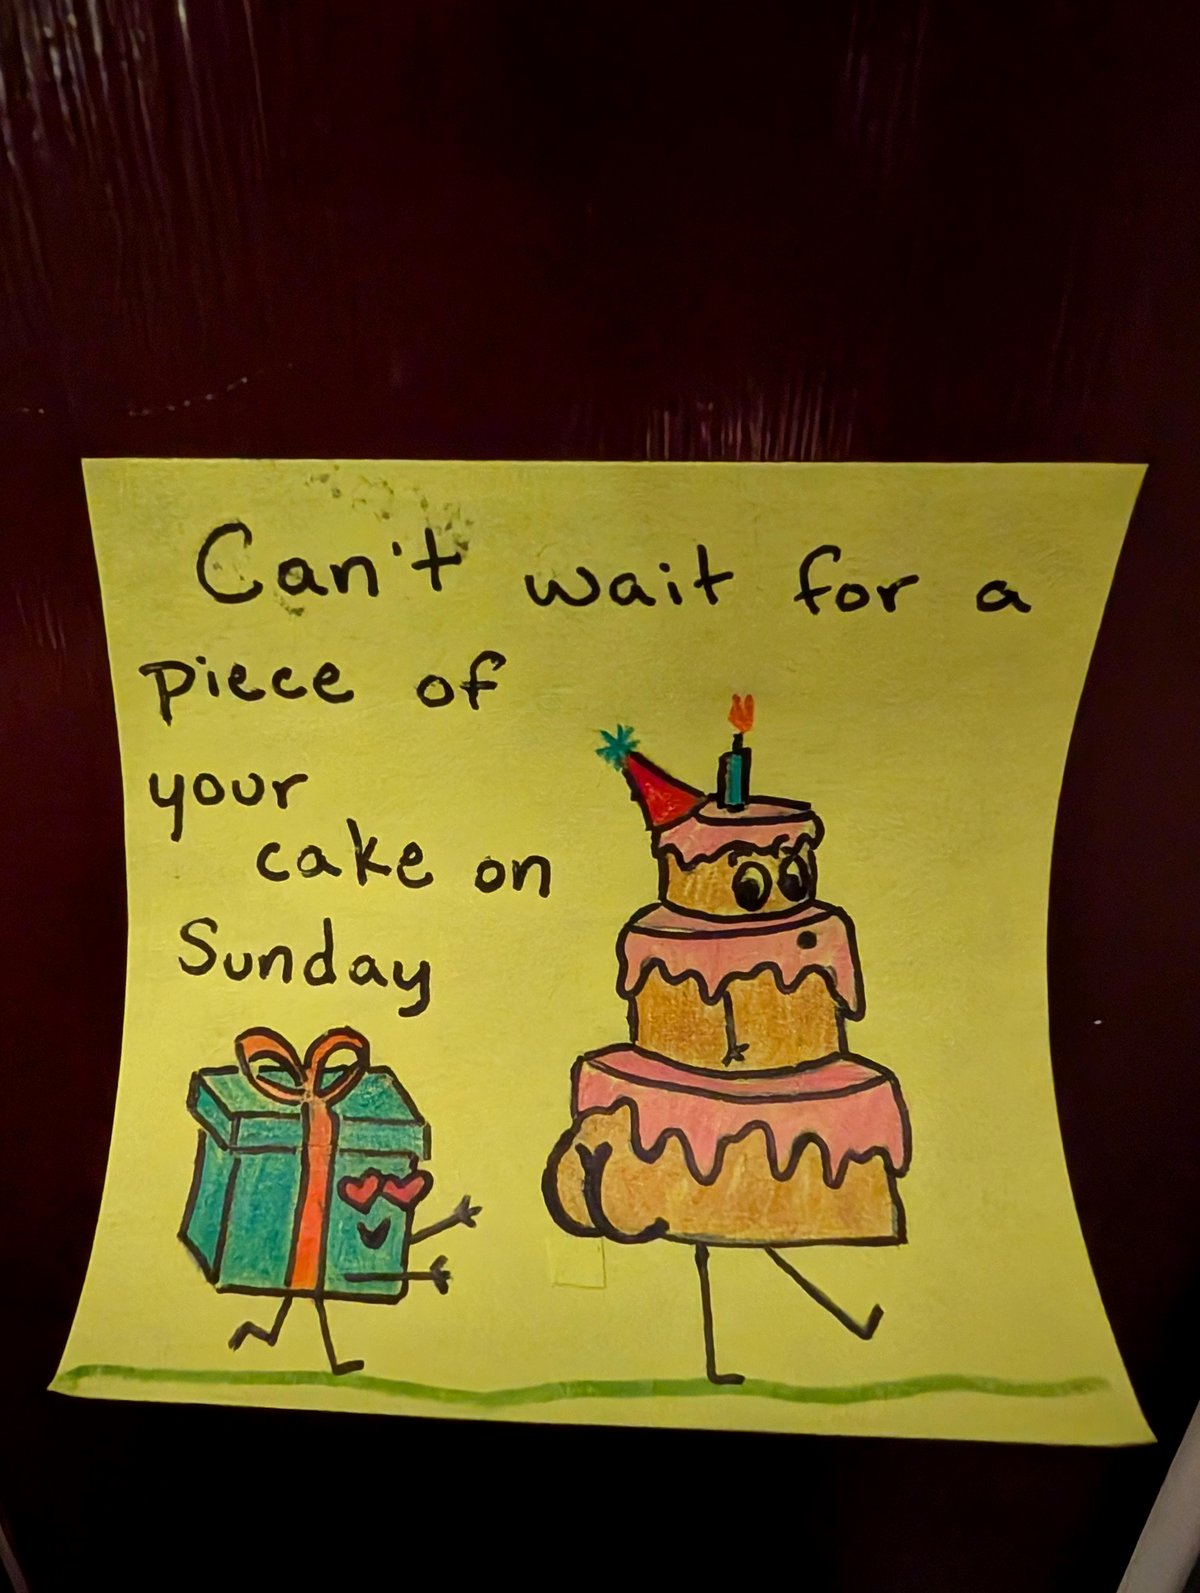 Can't wait for a
piece of
your
cake on
Sunday